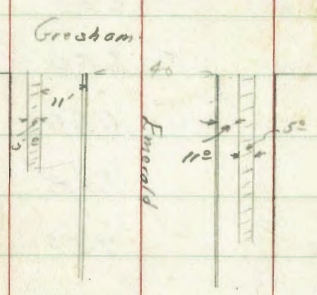 Gresham
40
11'
Emerald
11º
5º